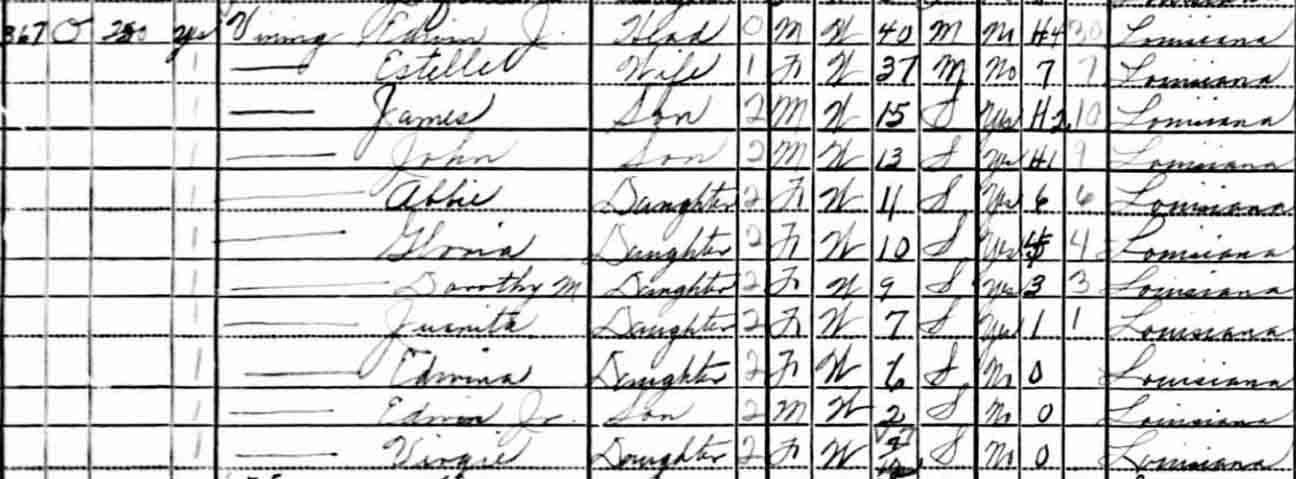 367 O 250 yes Vining Edwin J. Head 0 M W 40 M No H4 30 Louisiana
1 — Estelle Wife 1 F W 37 M No 7 7 Louisiana
— James Son 2 M W 15 S Yes H2 10 Louisiana
1 — John Son 2 M W 13 S Yes H1 9 Louisiana
1 — Abbie Daughter 2 F W 11 S Yes 6 6 Louisiana
1 — Gloria Daughter 2 F W 10 S Yes 4 4 Louisiana
— Dorothy M Daughter 2 F W 9 S Yes 3 3 Louisiana
1 — Juanita Daughter 2 F W 7 S Yes 1 1 Louisiana
1 — Edwina Daughter 2 F W 6 S No 0 Louisiana
1 — Edwin Jr. Son 2 M W 2 S No 0 Louisiana
1 — Virgie Daughter 2 F W S No 0 Louisiana